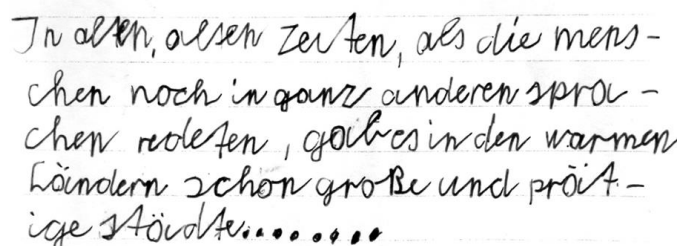 In alten, alten Zeiten, als die mens-
chen noch in ganz anderen spra-
chen redeten, gab es in den warmen
Ländern schon große und prät-
ige städte........